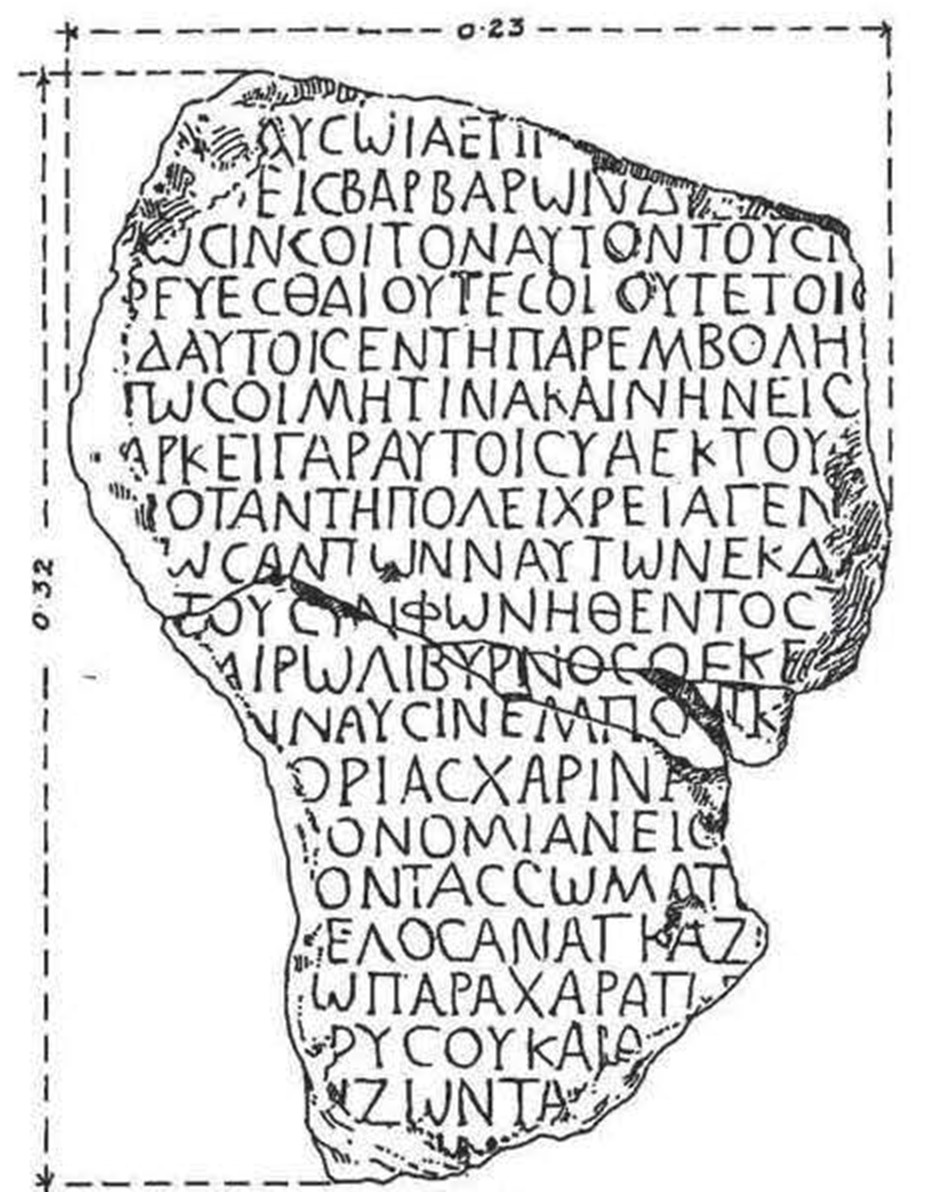 0·23
ΑΥϹΩΙΑΕΙΠ
ΕΙϹΒΑΡΒΑΡΩΙΝΔ
ΩϹΙΝϹΟΙΤΟΝΑΥΤΟΝΤΟΥϹΙ
ΡΕΥΕϹΘΑΙΟΥΤΕϹΟΙ ΟΥΤΕΤΟΙϹ
ΔΑΥΤΟΙϹΕΝΤΗΠΑΡΕΜΒΟΛΗ
ΠΩϹΟΙΜΗΤΙΝΑΚΑΙΝΗΝΕΙϹ
ΑΡΚΕΙΓΑΡΑΥΤΟΙϹΥΛΕΚΤΟΥ
ΟΤΑΝΤΗΠΟΛΕΙΧΡΕΙΑΓΕΝ
ΩϹΑΝΠΩΝΝΑΥΤΩΝΕΚΔ
ΤΟΥϹΥΝΦΩΝΗΘΕΝΤΟϹ
ΑΙΡΩΛΙΒΥΡΝΟϹΟΕΚΕ
ΝΝΑΥϹΙΝΕΜΠΟ ΙΚ
ΟΡΙΑϹΧΑΡΙΝΑ
ΟΝΟΜΙΑΝΕΙϹ
ΟΝΤΑϹϹΩΜΑΤ
ΕΛΟϹΑΝΑΓΚΑΖ
ΩΠΑΡΑΧΑΡΑΓΙ
ΡΥϹΟΥΚΑΙΑ
ΙΖΩΝΤΑ
0·32